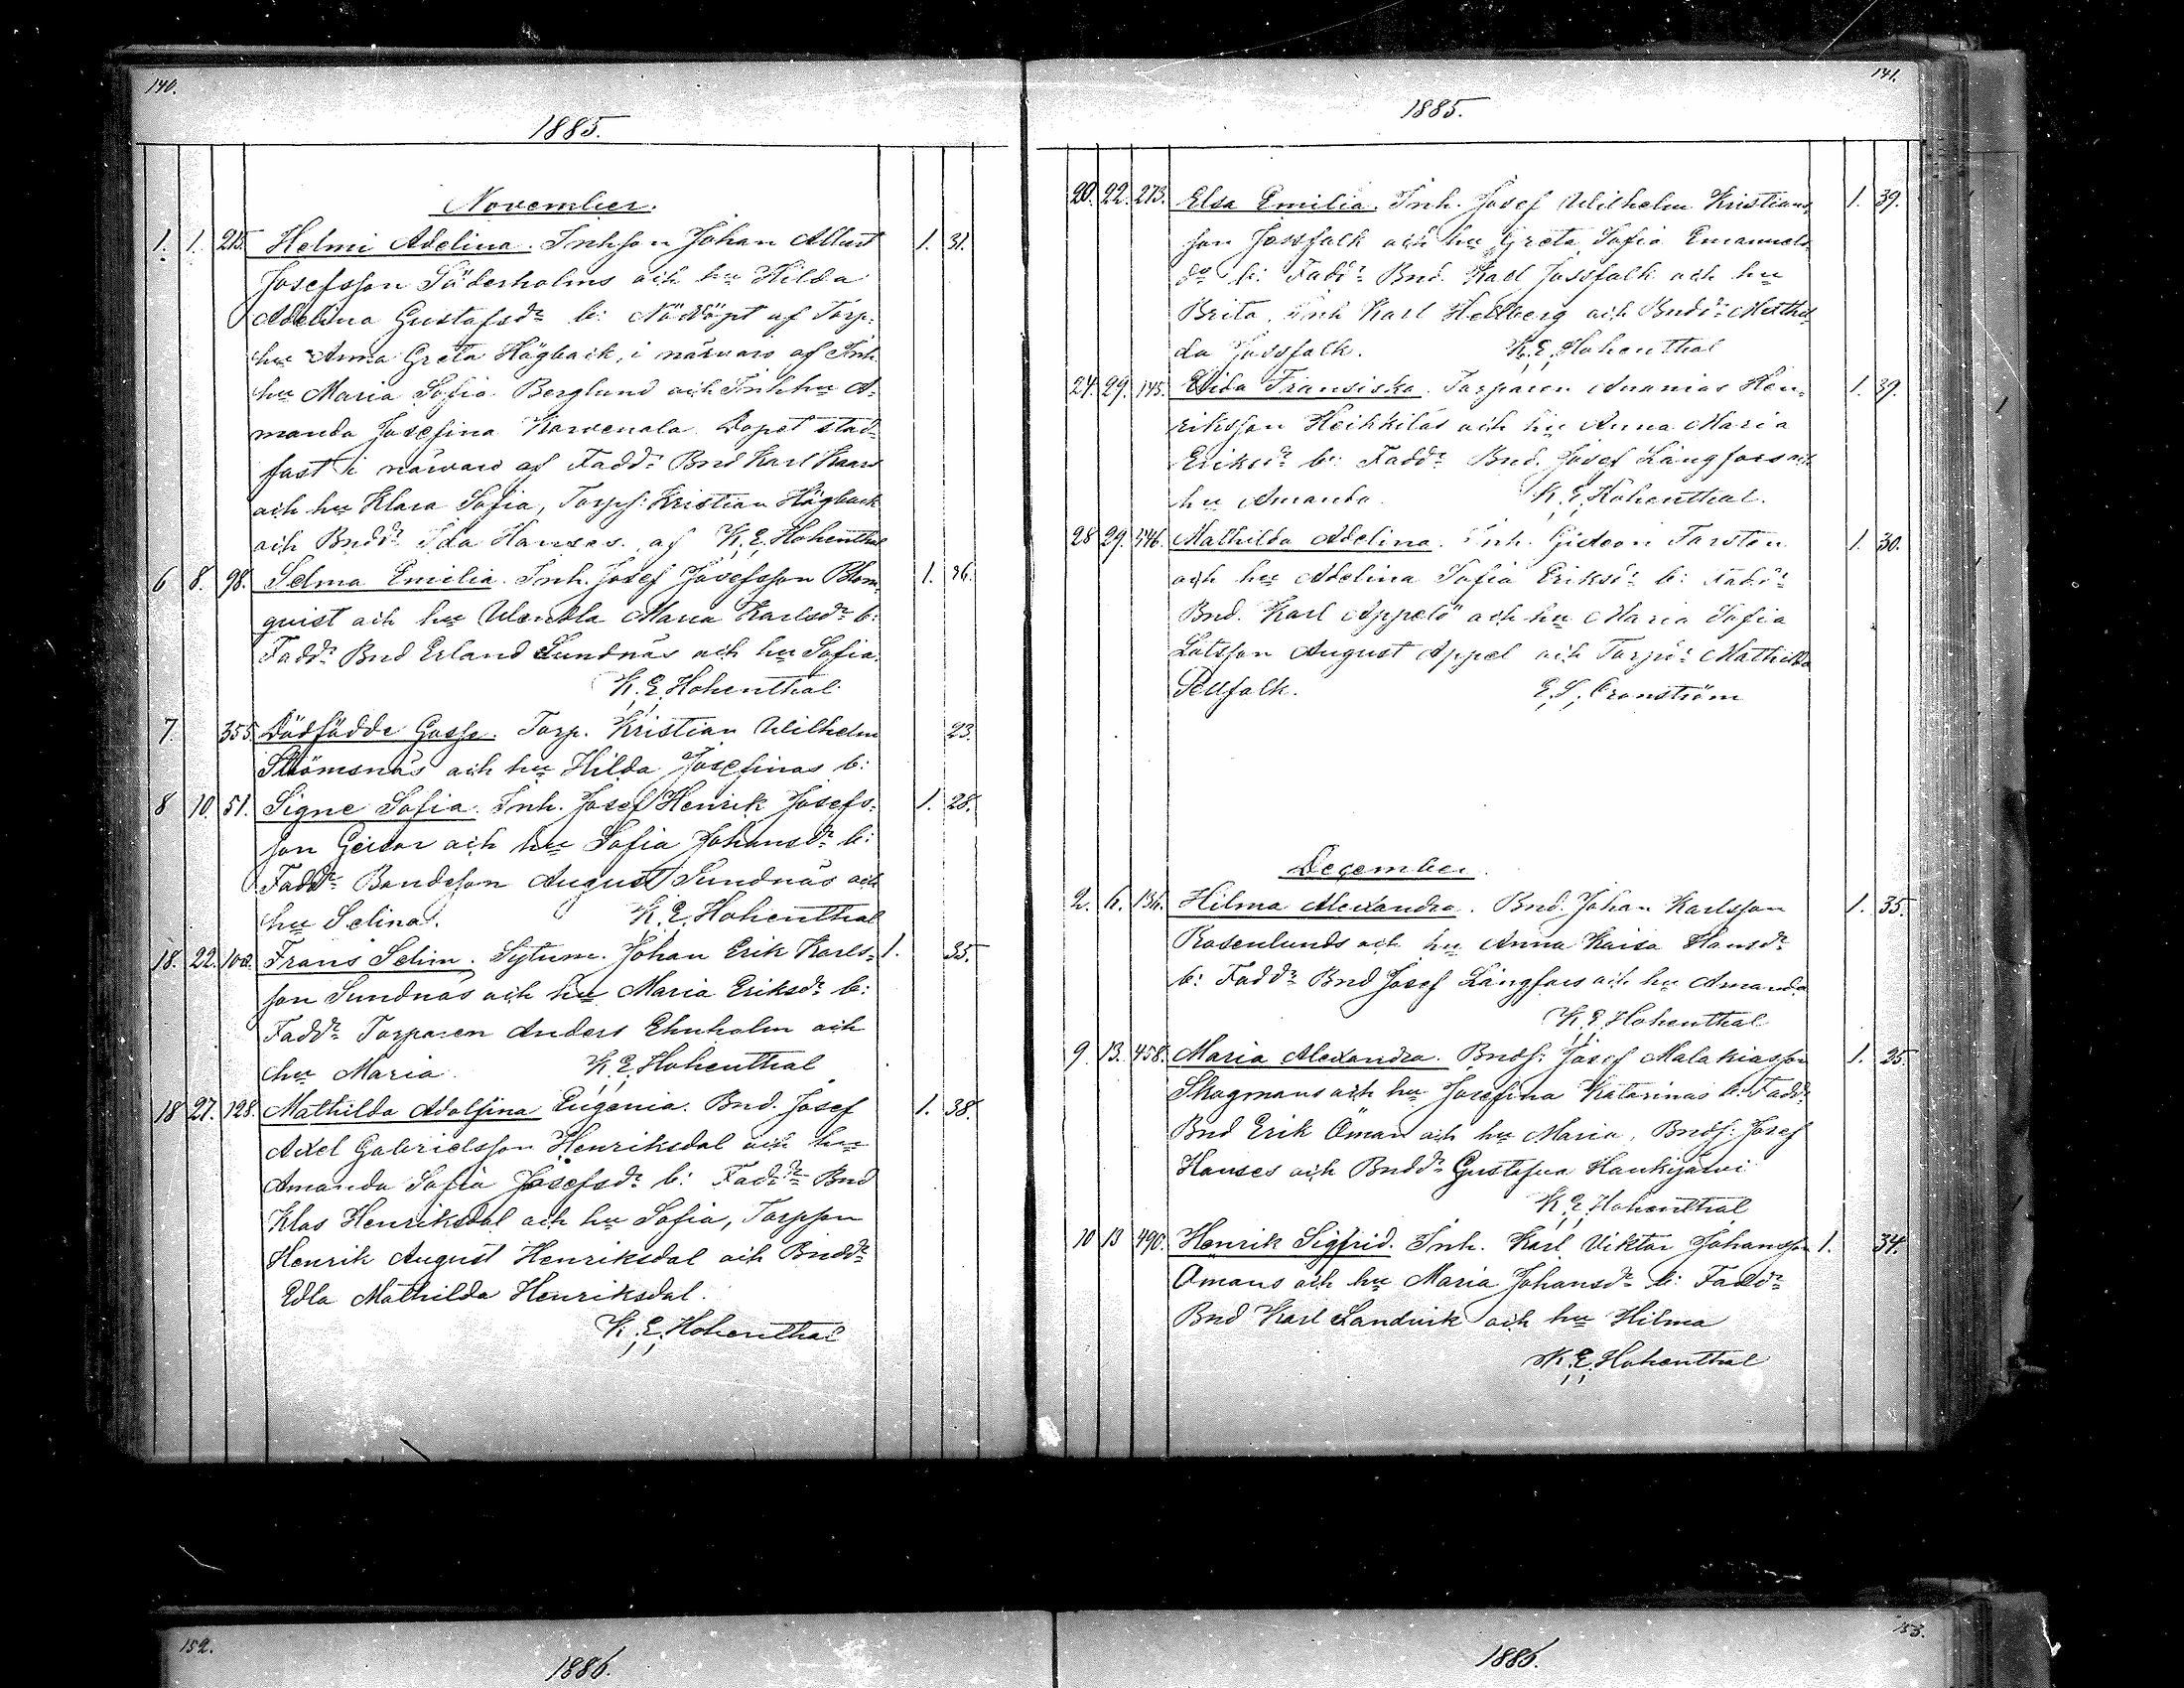 140.
1885.
November.
1. 1. 215. Helmi Adelina. Inhson Johan Albert 1. 31.
Josefsson Söderholms och hu Hilda
Adelina Gustafsdr b: Nöddöpt af Torp:
hu Anna Greta Högback, i närvaro af Inh
hu Maria Sofia Berglund och Inhhu A-
manda Josefina Karvenala. Dopet stad-
fäst i närvaro af Faddr Bnd Karl Kaars
och hu Klara Sofia, Torps: Kristian Högback
och Bnddr Ida Hanses. af K. E. Hohenthal
6 8. 98. Selma Emilia. Inh. Josef Josefsson Blom- 1. 36.
quist och hu Wendla Maria Karlsdr b:
Faddr Bnd Erland Sundnäs och hu Sofia.
K. E. Hohenthal
7. 355. Dödfödde Gosse. Torp. Kristian Wilhelm 23.
Strömsnäs och hu Hilda Josefinas b:
8 10. 51. Signe Sofia. Inh. Josef Henrik Josefs- 1. 28.
son Geisor och hu Sofia Johansdr b:
Faddr Bondeson August Sundnäs och
hu Selina. K. E. Hohenthal
18. 22. 102. Frans Selim. Sytnm. Johan Erik Karls- 1. 35.
son Sundnäs och hu Maria Eriksdr b:
Faddr Torparen Anders Ehnholm och
hu Maria. K. E. Hohenthal
18 27. 128. Mathilda Adolfina Eugenia. Bnd. Josef 1. 38.
Axel Gabrielsson Henriksdal och hu
Amanda Sofia Josefsdr b: Faddr Bnd
Klas Henriksdal och hu Sofia, Torpson
Henrik August Henriksdal och Bnddr
Edla Mathilda Henriksdal.
K. E. Hohenthal
141.
1885.
20. 22. 273. Elsa Emilia. Inh. Josef Wilhelm Kristians- 1. 39.
son Jossfolk och hu Greta Sofia Emanuels-
dr b: Faddr Bnd. Karl Jossfolk och hu
Brita, Inh Karl Hellberg och Bnddr Mathil-
da Jossfolk. K. E. Hohenthal
24. 29. 145. Elida Fransiska. Torparen Ananias Hen- 1. 39.
riksson Heikkiläs och hu Anna Maria
Eriksdr b: Faddr Bnd. Josef Långfors och
hu Amanda. K. E. Hohenthal.
28 29. 446. Mathilda Adelina. Inh. Gideon Forsten 1. 30.
och hu Adelina Sofia Eriksdr b: Faddr
Bnd. Karl Appelö och hu Maria Sofia
Lotsson August Appel och Torpdr Mathilda
Pellfolk. E. S. Cronström
December.
2. 6. 136. Hilma Alexandra. Bnd. Johan Karlsson 1. 35.
Rosenlunds och hu Anna Kaisa Hansdr
b: Faddr Bnd Josef Långfors och hu Amanda
K. E. Hohenthal
9. 13. 458. Maria Alexandra. Bnds: Josef Malakiasson 1. 25.
Skogmans och hu Josefina Katarinas b: Faddr
Bnd Erik Öman och hu Maria, Bnds: Josef
Hanses och Bnddr Gustafva Haukijärvi
K. E. Hohenthal
10 13 490. Henrik Sigfrid. Inh. Karl Viktor Johansson 1. 34.
Ömans och hu Maria Johansdr b: Faddr
Bnd Karl Sandvik och hu Hilma
K. E. Hohenthal
152.
1886.
153.
1886.